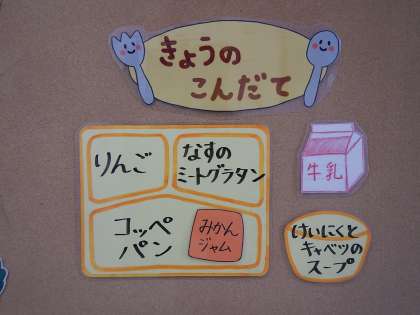 きょうの
こんだて
りんご
なすの
ミートグラタン
コッペ
パン
みかん
ジャム
牛乳
けいにくと
キャベツの
スープ